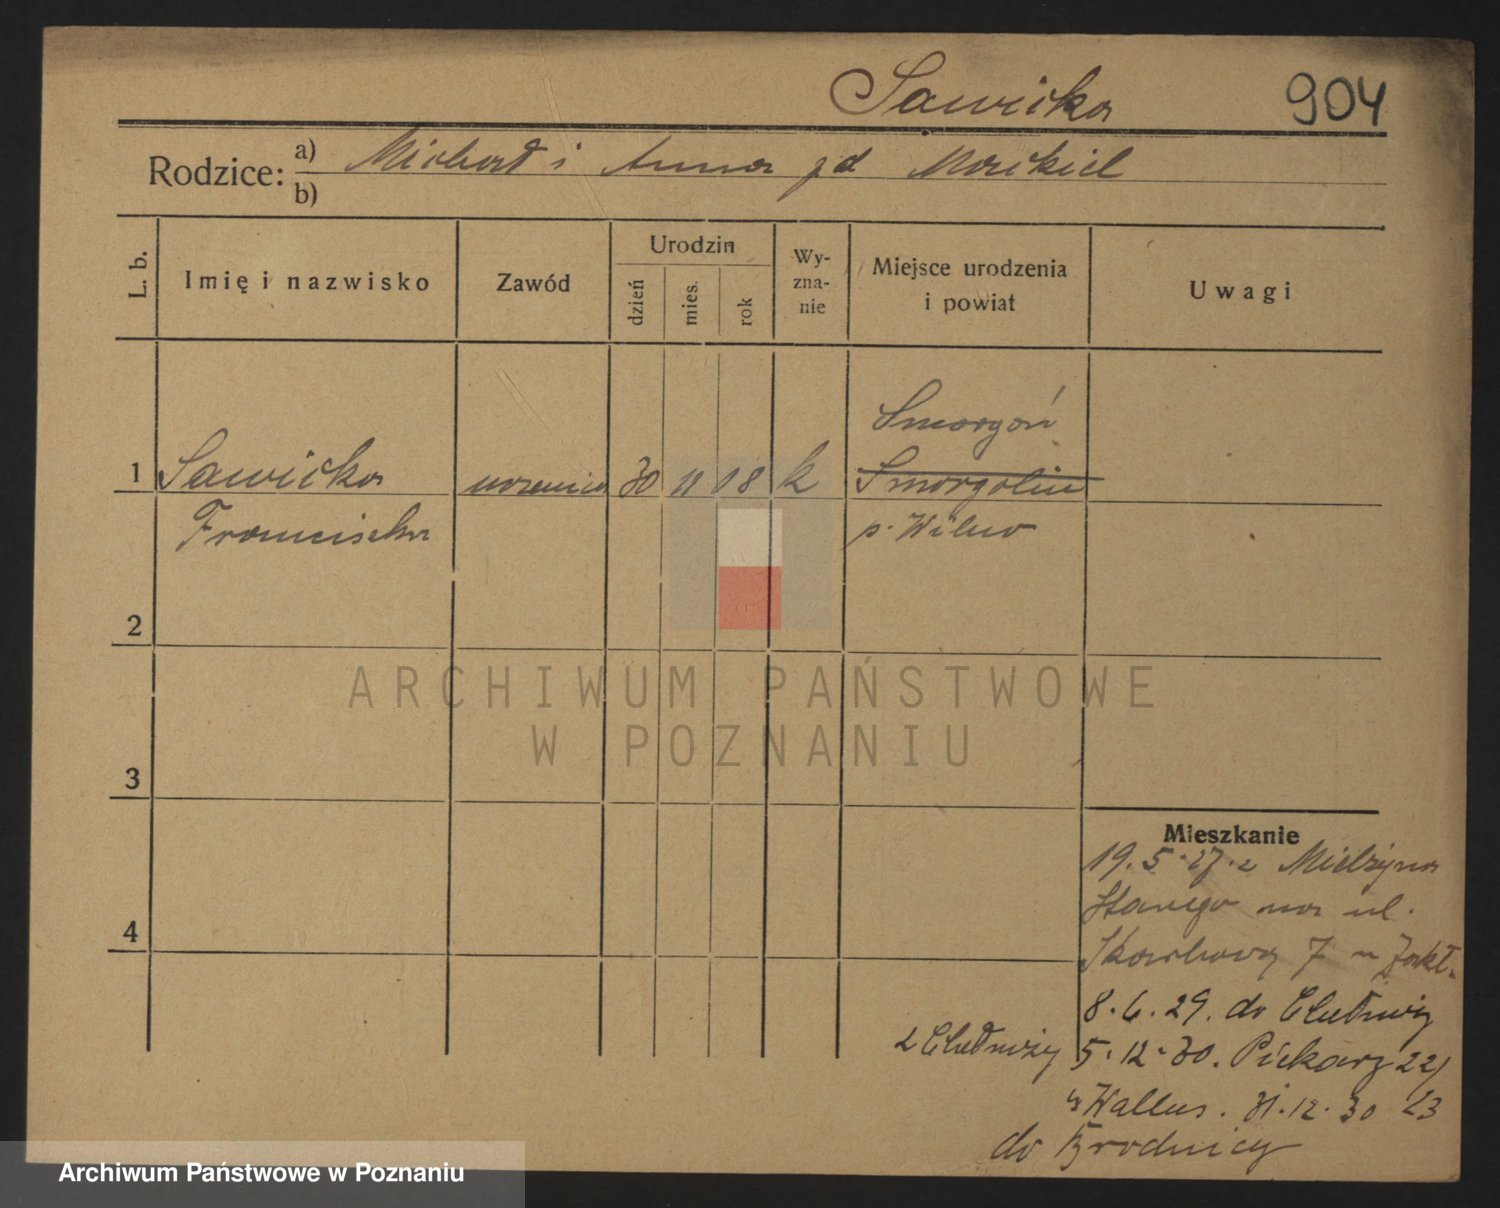 Sawicka 904
Rodzice: a) Michał i Anna zd Maickiel
b)
L. b. Imię i nazwisko Zawód Urodzin dzień mies. rok Wy-zna-nie Miejsce urodzenia i powiat Uwagi
Smorgoń
1 Sawicka uczenica 30 11 08 k Smorgolin
Franciszka p. Wilno
2
ARCHIWUM PAŃSTWOWE
W POZNANIU
3
Mieszkanie
19.5.27. z Mielżyna
Stanego na ul.
4
7 w Zakł.
8.6.29. do Chełmży
z Chełmży 5.12.30. Piekary 22/
u Wallus. 31.12.30 23
do Brodnicy
Archiwum Państwowe w Poznaniu